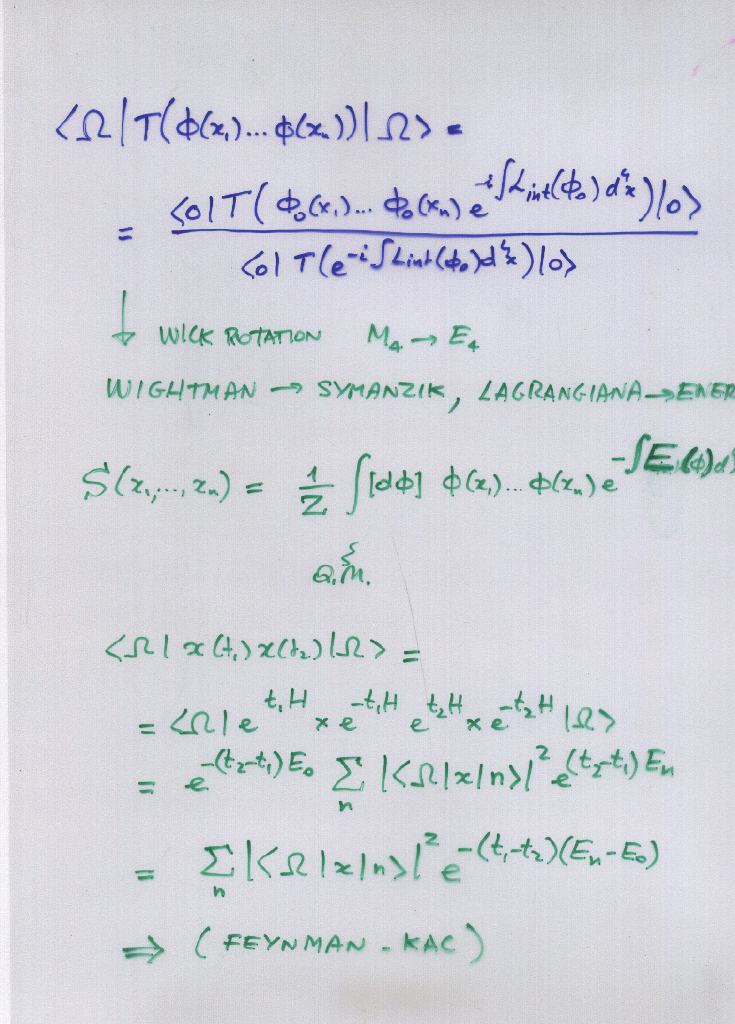 <Ω|T(ϕ(x₁)...ϕ(xₙ))|Ω> =
= <0|T(ϕ₀(x₁)...ϕ₀(xₙ) e^{-i∫ℒ_int(ϕ₀)d⁴x})|0>
<0|T(e^{-i∫ℒ_int(ϕ₀)d⁴x})|0>
↓ WICK ROTATION M₄ → E₄
WIGHTMAN → SYMANZIK, LAGRANGIANA → ENER
S(x₁,...,xₙ) = 1/Z ∫[dϕ] ϕ(x₁)...ϕ(xₙ) e^{-∫E(ϕ)d
Q.M.
<Ω|x(t₁)x(t₂)|Ω> =
= <Ω|e^{t₁H} x e^{-t₁H} e^{t₂H} x e^{-t₂H}|Ω>
= e^{-(t₂-t₁)E₀} Σₙ |<Ω|x|n>|² e^{(t₂-t₁)Eₙ}
= Σₙ |<Ω|x|n>|² e^{-(t₁-t₂)(Eₙ-E₀)}
⇒ (FEYNMAN - KAC)